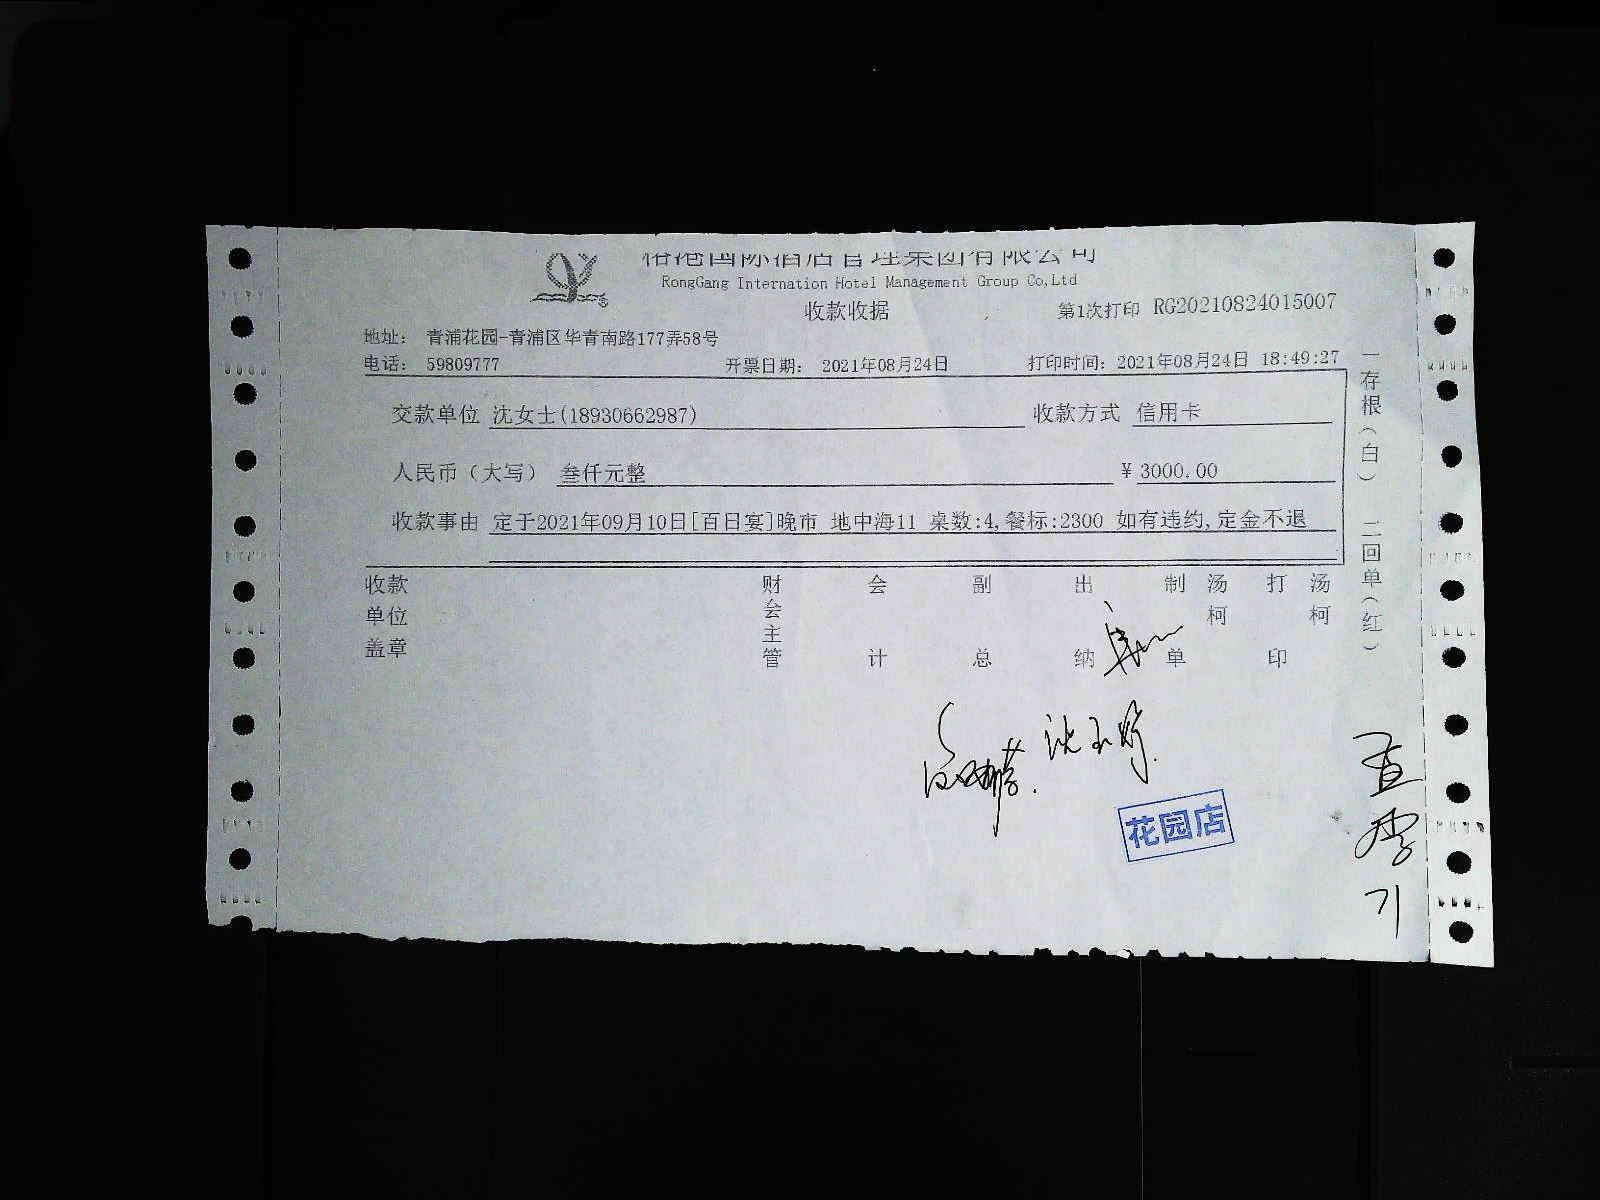 国际酒店管理集团有限公司
RongGang Internation Hotel Management Group Co,Ltd
收款收据
第1次打印 RG20210824015007
地址: 青浦花园-青浦区华青南路177弄58号
电话: 59809777 开票日期: 2021年08月24日 打印时间: 2021年08月24日 18:49:27
交款单位 沈女士(18930662987) 收款方式 信用卡
人民币(大写) 叁仟元整 ¥ 3000.00
收款事由 定于2021年09月10日[百日宴]晚市 地中海11 桌数:4,餐标:2300 如有违约,定金不退
收款单位盖章 财会主管 会计 副总 出纳 制单 汤柯 打印 汤柯
一存根(白) 二回单(红)
花园店